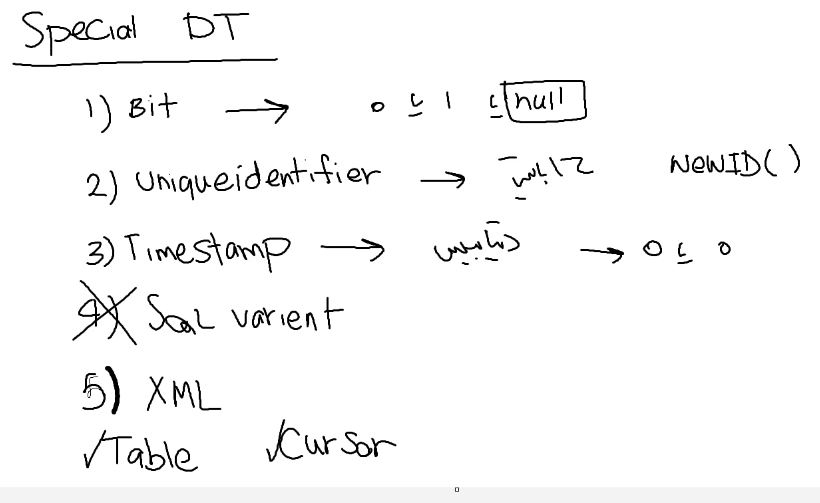 Special DT
1) Bit → 0 يا 1 يا null
2) Uniqueidentifier → NewID()
3) Timestamp → دیتابیس → 0 يا 0
4) Sql varient
5) XML
√Table √Cursor